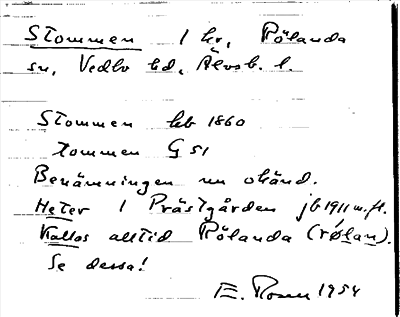 Stommen 1 hr, Rölanda
sn, Vedbo hd, Älvsb. l.
Stommen hb 1860
Stommen G 51
Benämningen nu okänd.
Heter 1 Prästgården jb 1911 m.fl.
Kallas alltid Rölanda (rølan).
Se dessa!
E. Rosen 1954